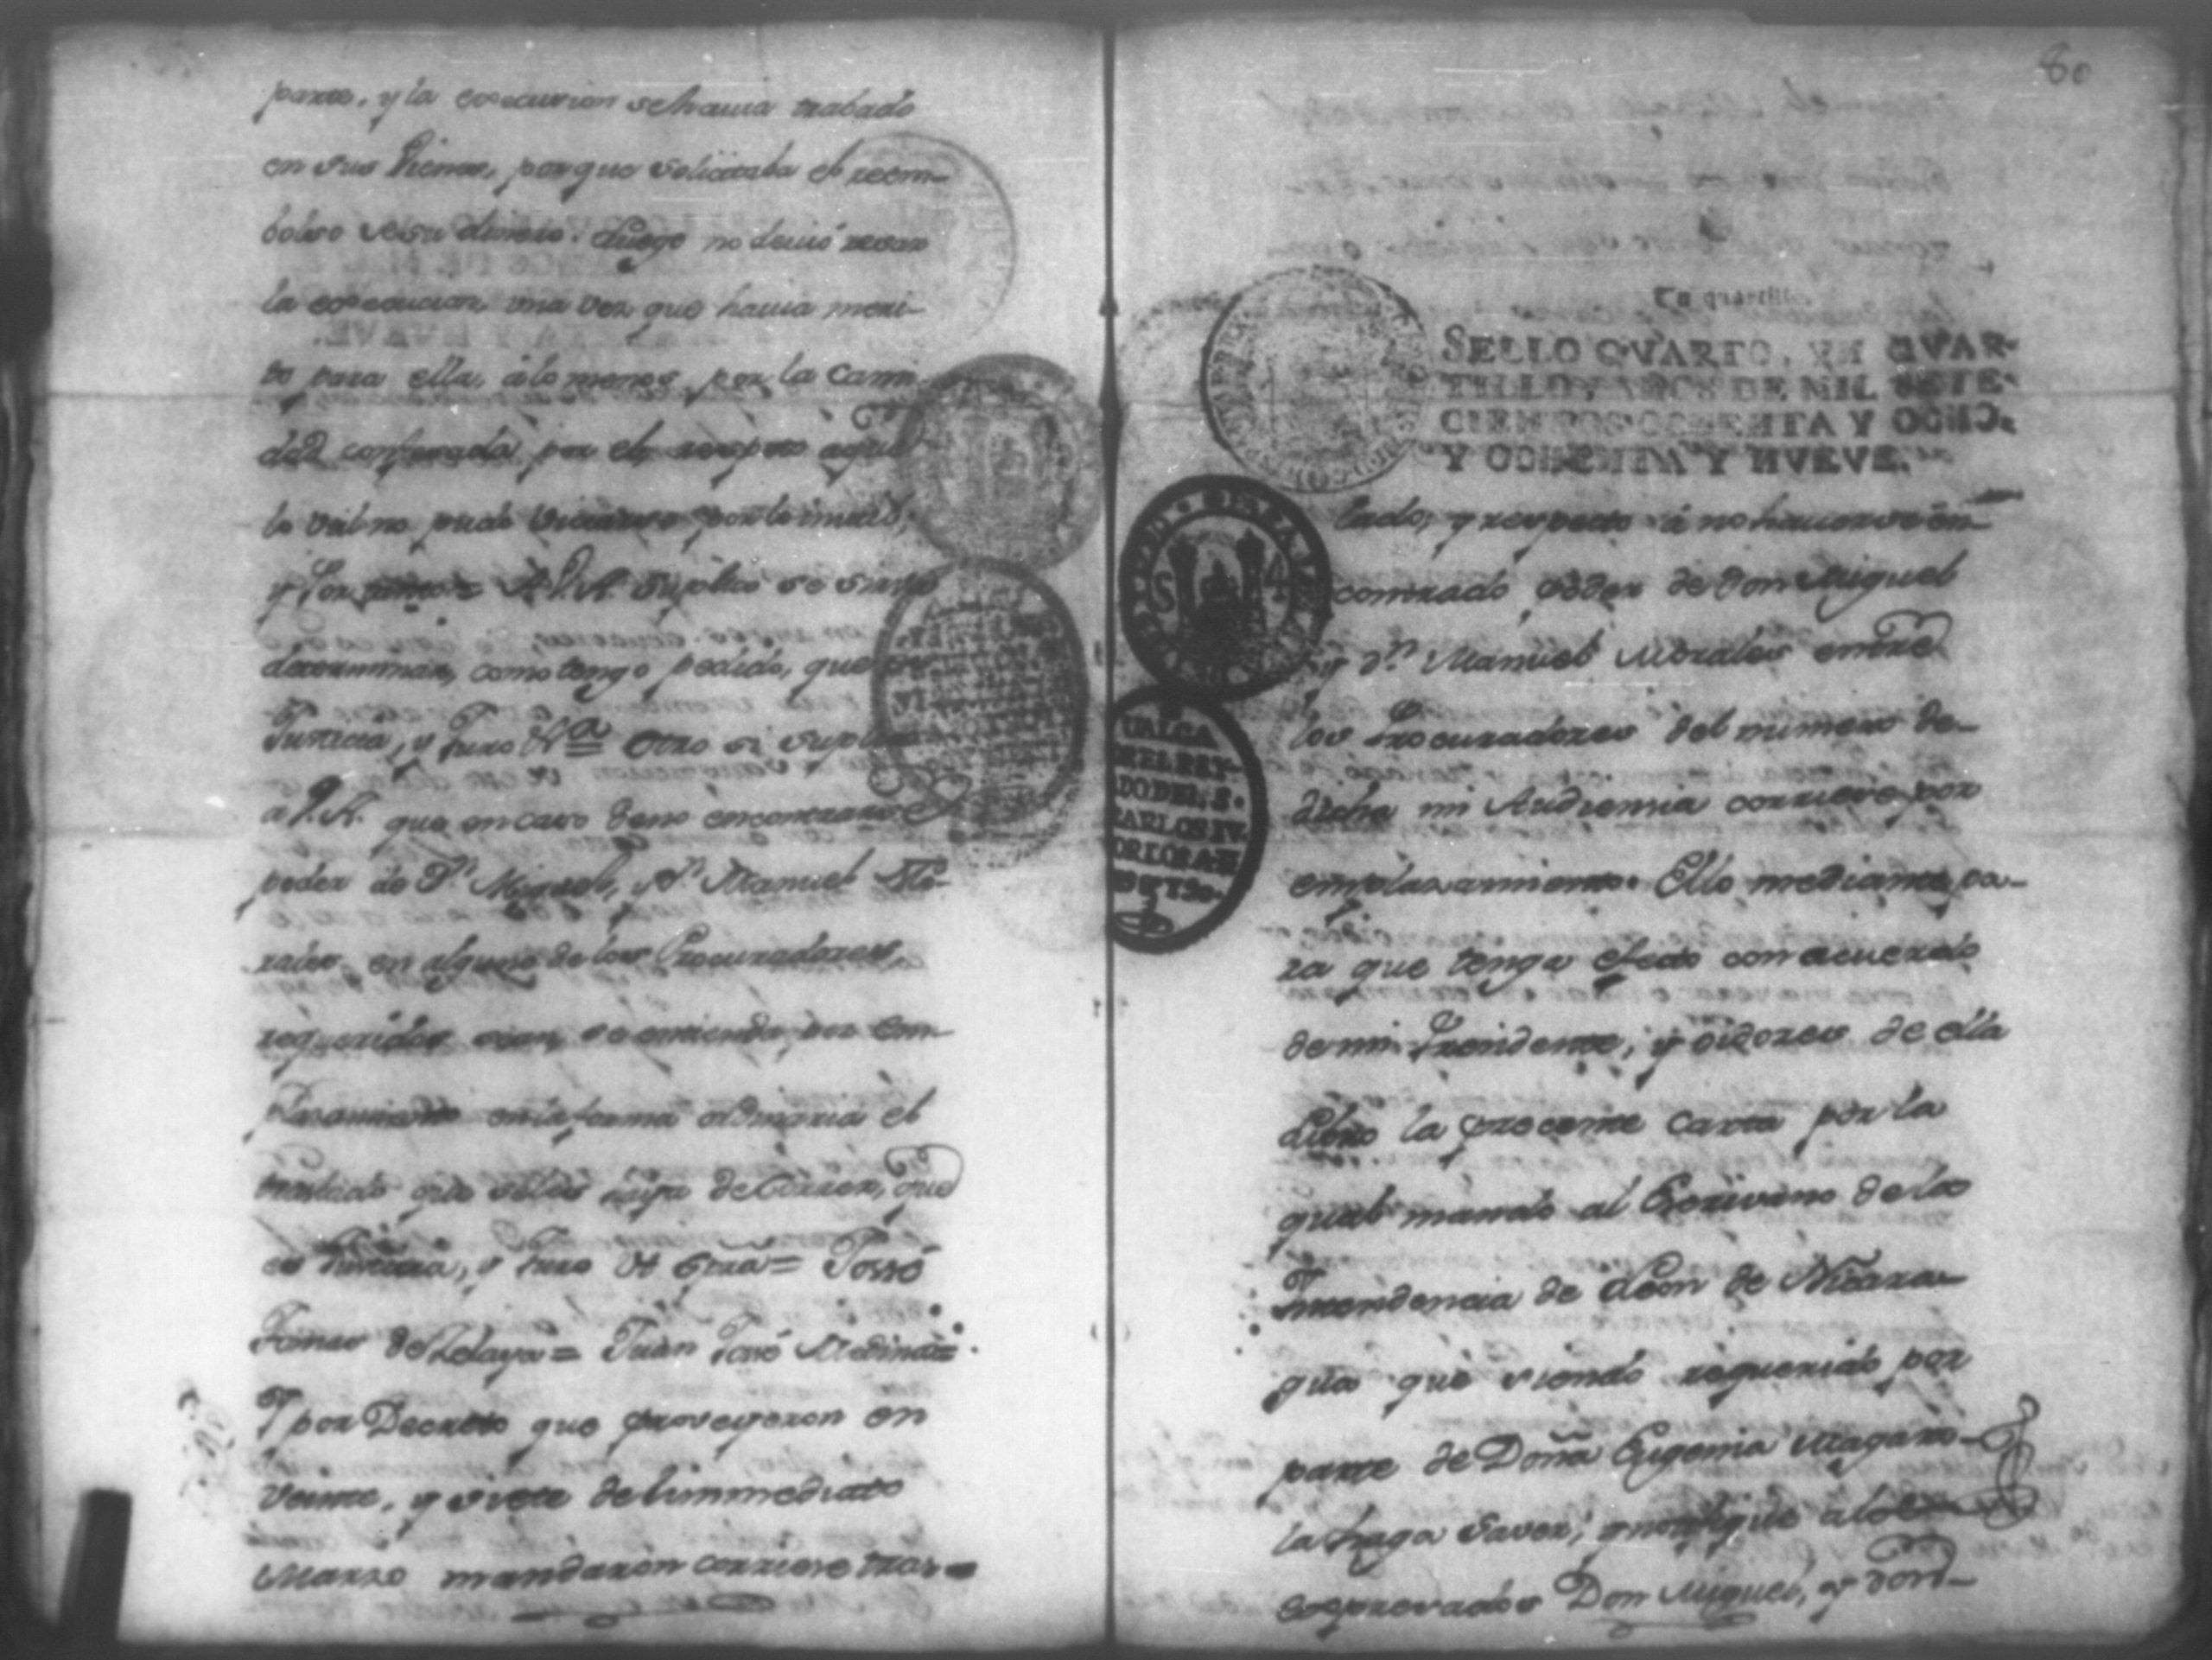 parte, y la execucion se havia trabado
en sus Vienes, porque solicitaba el reem-
bolso de su dinero. Luego no devió cesar
la execucion una vez que havia meri-
to para ella, á lo menos por la canti-
dad confesada por el
lo util no puede viciarse por lo inutil,
y Por tanto = A V.A. Suplico se sirva
determinar, como tengo pedido, que es
Justicia, y Juro Vª Otro si suplico
a V.A. que en caso de no encontrarse
poder de Dn Miguel, y Dn Manuel Mo-
rales, en alguno de los Procuradores,
requeridos sean, se entienda por em-
plazamiento en la forma ordinaria el
traslado que se les haya de Correr, que
es Justicia, y Juro Vt Supra = Josse
Tomas de Zelaya = Juan José Medina =
Y por Decreto que proveyeron en
veinte, y siete del immediato
Marzo mandaron corriese tras-
80
Un quartillo.
SELLO QVARTO, VN QVAR-
TILLO, AÑOS DE MIL SETE-
CIENTOS OCHENTA Y OCHO,
Y OCHENTA Y NVEVE.
lado, y respecto á no haverse en-
contrado poder de Don Miguel
y Dn Manuel Morales entre
los Procuradores del numero de
dicha mi Audiencia corriese por
emplazamiento. Ello mediante pa-
ra que tenga efecto con acuerdo
de mi Presidente, y oidores de ella
Libro la presente carta por la
qual mando al Escrivano de la
Intendencia de Leon de Nicara-
gua que siendo requerido por
parte de Doña Eugenia Magari-
la haga saver, y notifique a los
expresados Don Miguel, y Don
S 4
VALGA
POR EL REY-
DO DEL S.
CARLOS IV.